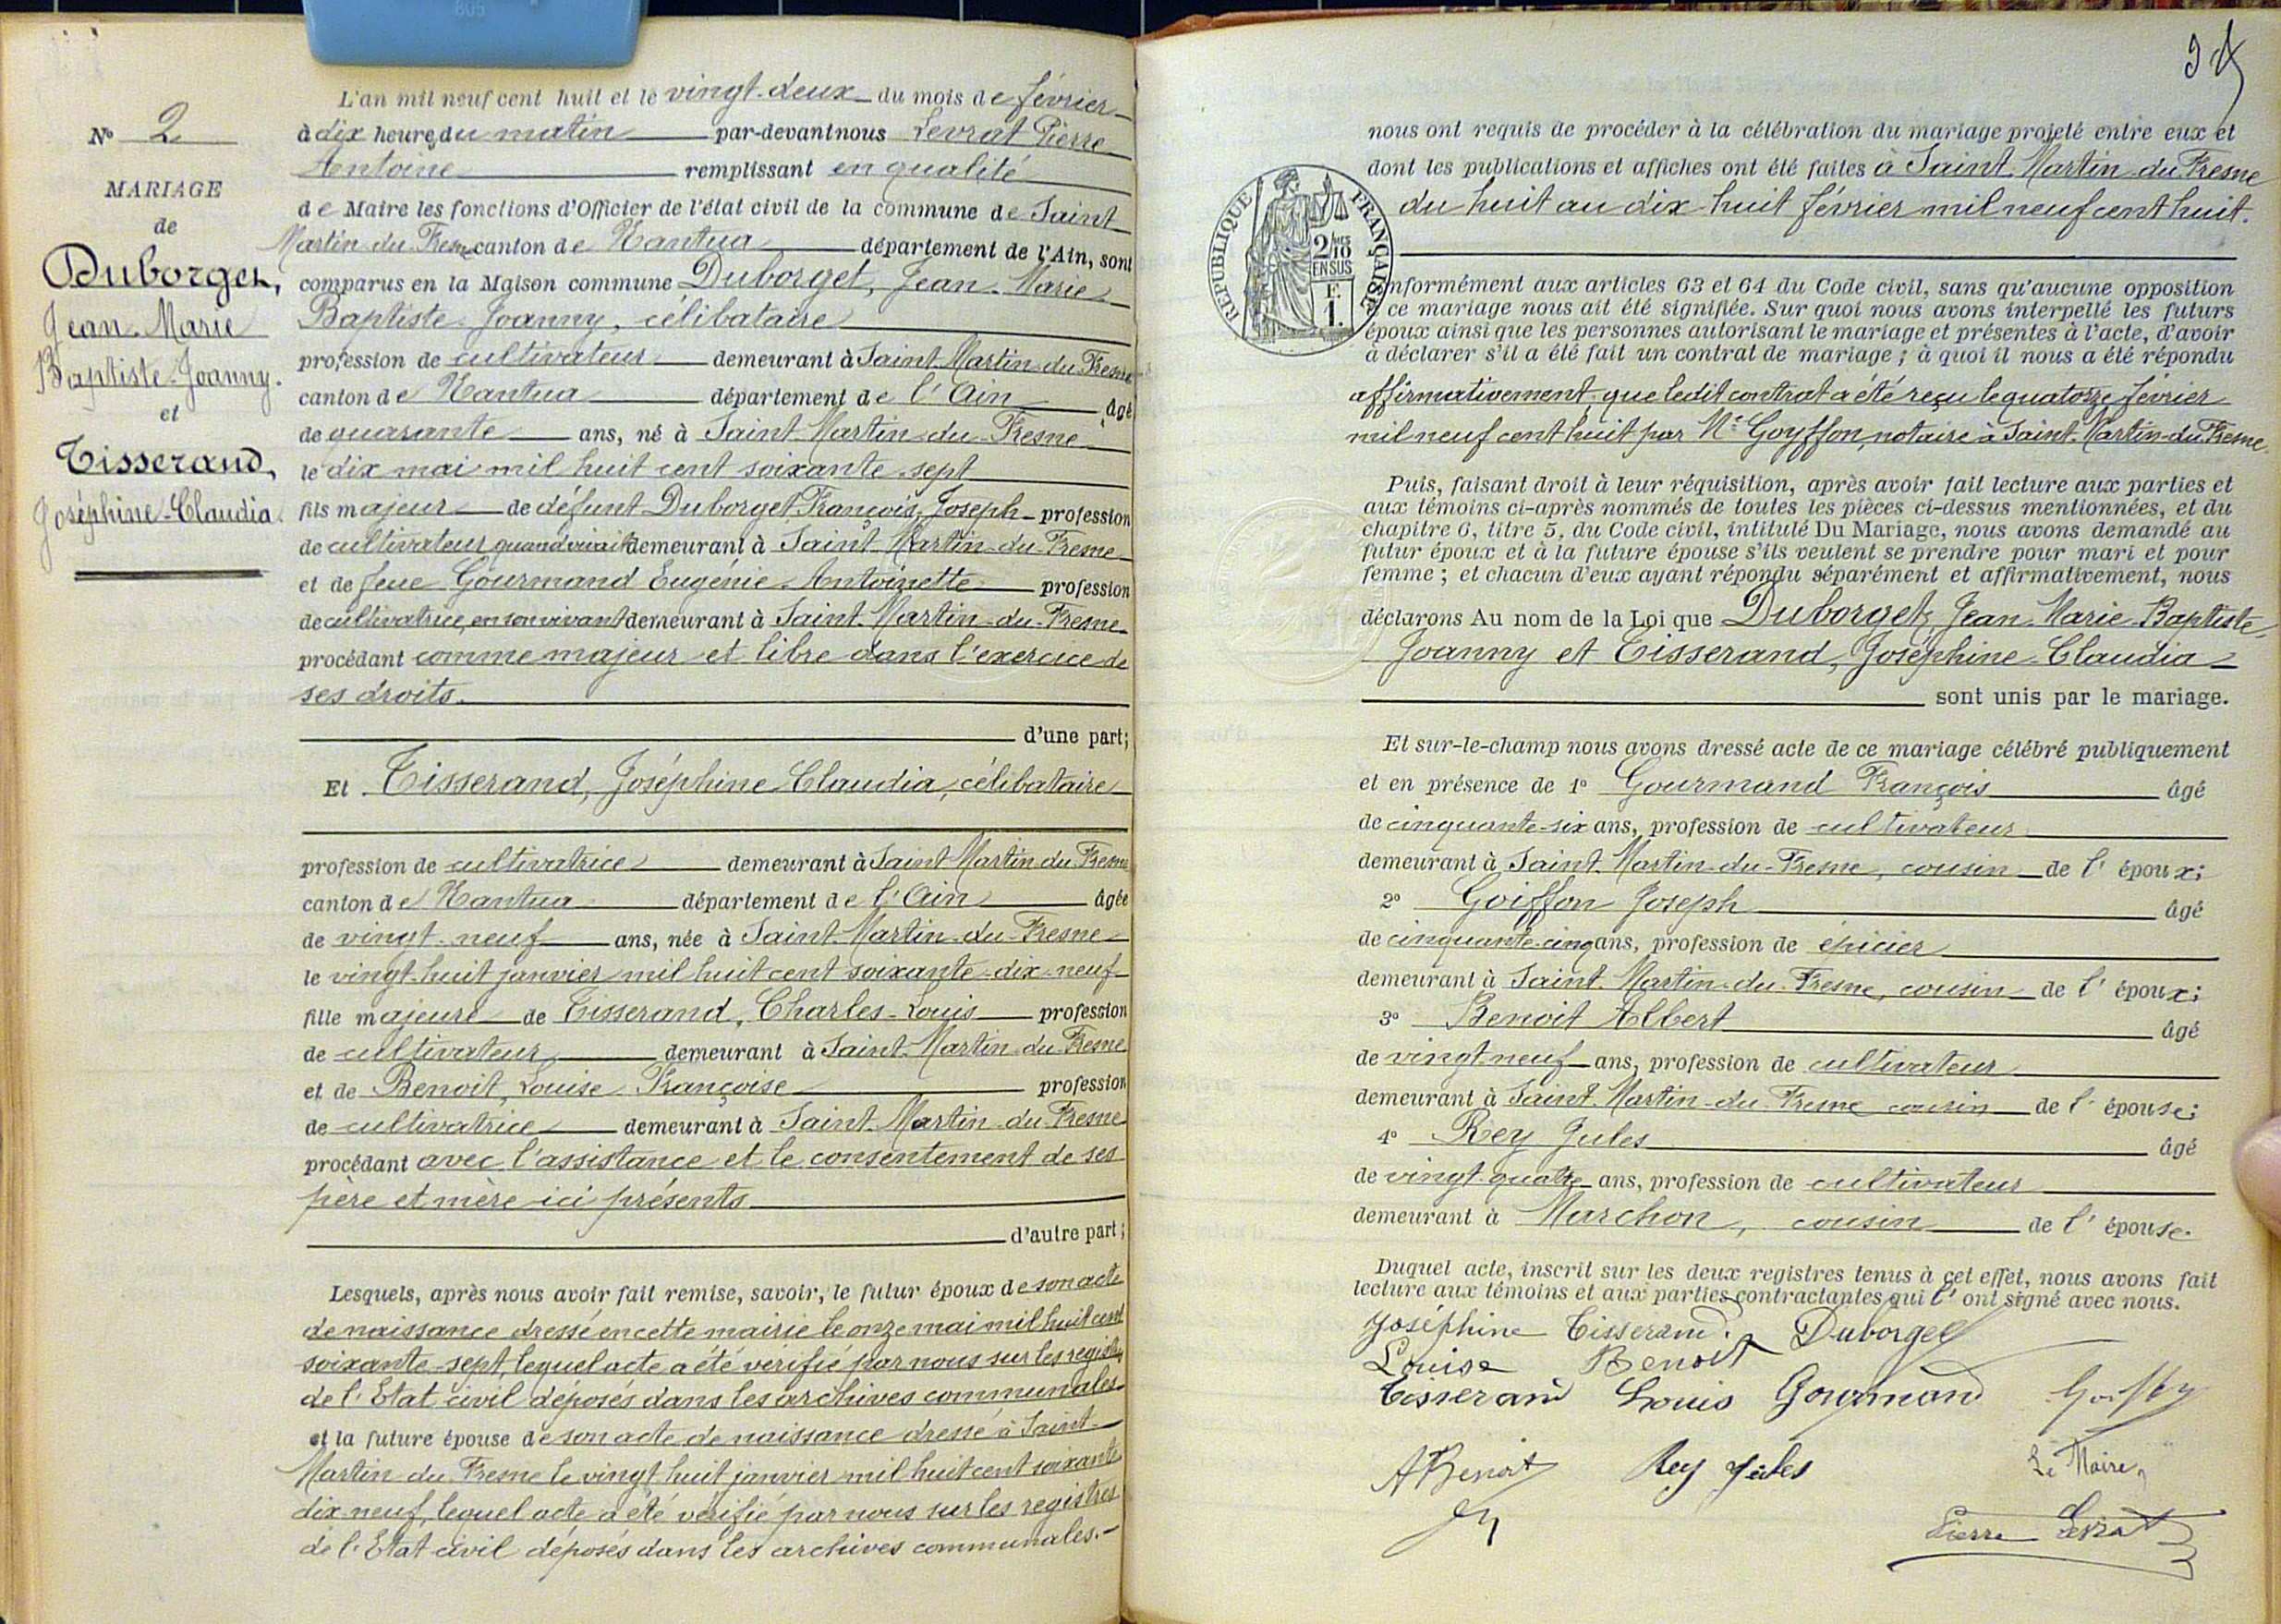 805
N° 2
MARIAGE
de
Duborget,
Jean-Marie
Baptiste-Joanny.
et
Tisserand,
Joséphine-Claudia.
L'an mil neuf cent huit et le vingt-deux du mois de février
à dix heures du matin par-devant nous Levrat Pierre
Antoine remplissant en qualité
de Maire les fonctions d'Officier de l'état civil de la commune de Saint
Martin-du-Fresne canton de Nantua département de l'Ain, sont
comparus en la Maison commune Duborget, Jean-Marie
Baptiste-Joanny, célibataire
profession de cultivateur demeurant à Saint-Martin-du-Fresne
canton de Nantua département de l'Ain âgé
de quarante ans, né à Saint-Martin-du-Fresne
le dix mai mil huit cent soixante-sept
fils majeur de défunt Duborget, François, Joseph profession
de cultivateur quand vivait demeurant à Saint-Martin-du-Fresne
et de feue Gourmand Eugénie-Antoinette profession
de cultivatrice, en son vivant demeurant à Saint-Martin-du-Fresne
procédant comme majeur et libre dans l'exercice de
ses droits.
d'une part;
Et Tisserand, Joséphine Claudia, célibataire
profession de cultivatrice demeurant à Saint Martin du Fresne
canton de Nantua département de l'Ain âgée
de vingt-neuf ans, née à Saint-Martin-du-Fresne
le vingt-huit janvier mil huit cent soixante-dix-neuf
fille majeure de Tisserand, Charles-Louis profession
de cultivateur demeurant à Saint-Martin-du-Fresne
et de Benoit, Louise Françoise profession
de cultivatrice demeurant à Saint-Martin-du-Fresne
procédant avec l'assistance et le consentement de ses
père et mère ici présents
d'autre part;
Lesquels, après nous avoir fait remise, savoir, le futur époux de son acte
de naissance dressé en cette mairie le onze mai mil huit cent
soixante-sept, lequel acte a été vérifié par nous sur les registres
de l'Etat civil déposés dans les archives communales
et la future épouse de son acte de naissance dressé à Saint-
Martin du Fresne le vingt huit janvier mil huit cent soixante
dix-neuf, lequel acte a été vérifié par nous sur les registres
de l'Etat civil déposés dans les archives communales.
nous ont requis de procéder à la célébration du mariage projeté entre eux et
dont les publications et affiches ont été faites à Saint-Martin-du-Fresne
du huit au dix-huit février mil neuf cent huit.
RÉPUBLIQUE FRANÇAISE
2/10 MES
EN SUS
F.
1.
nformément aux articles 63 et 64 du Code civil, sans qu'aucune opposition
ce mariage nous ait été signifiée. Sur quoi nous avons interpellé les futurs
époux ainsi que les personnes autorisant le mariage et présentes à l'acte, d'avoir
à déclarer s'il a été fait un contrat de mariage; à quoi il nous a été répondu
affirmativement que ledit contrat a été reçu le quatorze février
mil neuf cent huit par Me Goyffon, notaire à Saint-Martin-du-Fresne.
Puis, faisant droit à leur réquisition, après avoir fait lecture aux parties et
aux témoins ci-après nommés de toutes les pièces ci-dessus mentionnées, et du
chapitre 6, titre 5, du Code civil, intitulé Du Mariage, nous avons demandé au
futur époux et à la future épouse s'ils veulent se prendre pour mari et pour
femme; et chacun d'eux ayant répondu séparément et affirmativement, nous
déclarons Au nom de la Loi que Duborget, Jean-Marie-Baptiste-
Joanny et Tisserand, Joséphine-Claudia
sont unis par le mariage.
Et sur-le-champ nous avons dressé acte de ce mariage célébré publiquement
et en présence de 1° Gourmand François âgé
de cinquante-six ans, profession de cultivateur
demeurant à Saint-Martin-du-Fresne, cousin de l'époux;
2° Goiffon Joseph âgé
de cinquante-cinq ans, profession de épicier
demeurant à Saint-Martin-du-Fresne, cousin de l'époux;
3° Benoit Albert âgé
de vingt-neuf ans, profession de cultivateur
demeurant à Saint-Martin-du-Fresne cousin de l'épouse;
4° Rey Jules âgé
de vingt-quatre ans, profession de cultivateur
demeurant à Marchon, cousin de l'épouse.
Duquel acte, inscrit sur les deux registres tenus à cet effet, nous avons fait
lecture aux témoins et aux parties contractantes qui l'ont signé avec nous.
Joséphine Tisserand. Duborget
Louise Benoit
Tisserand Louis Gourmand
ABenoit Rey Jules Le Maire,
Pierre Levrat